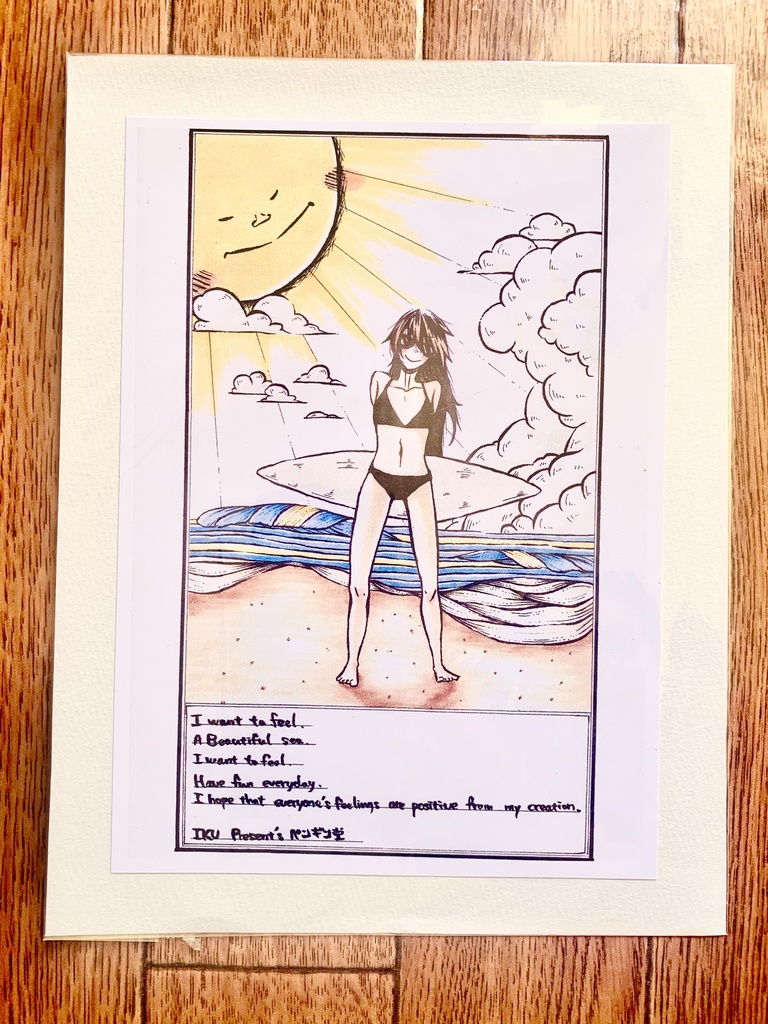 I want to feel.
A Beautiful sea.
I want to feel.
Have fun everyday.
I hope that everyone's feelings are positive from my creation.
IKU Present's ペンギン堂